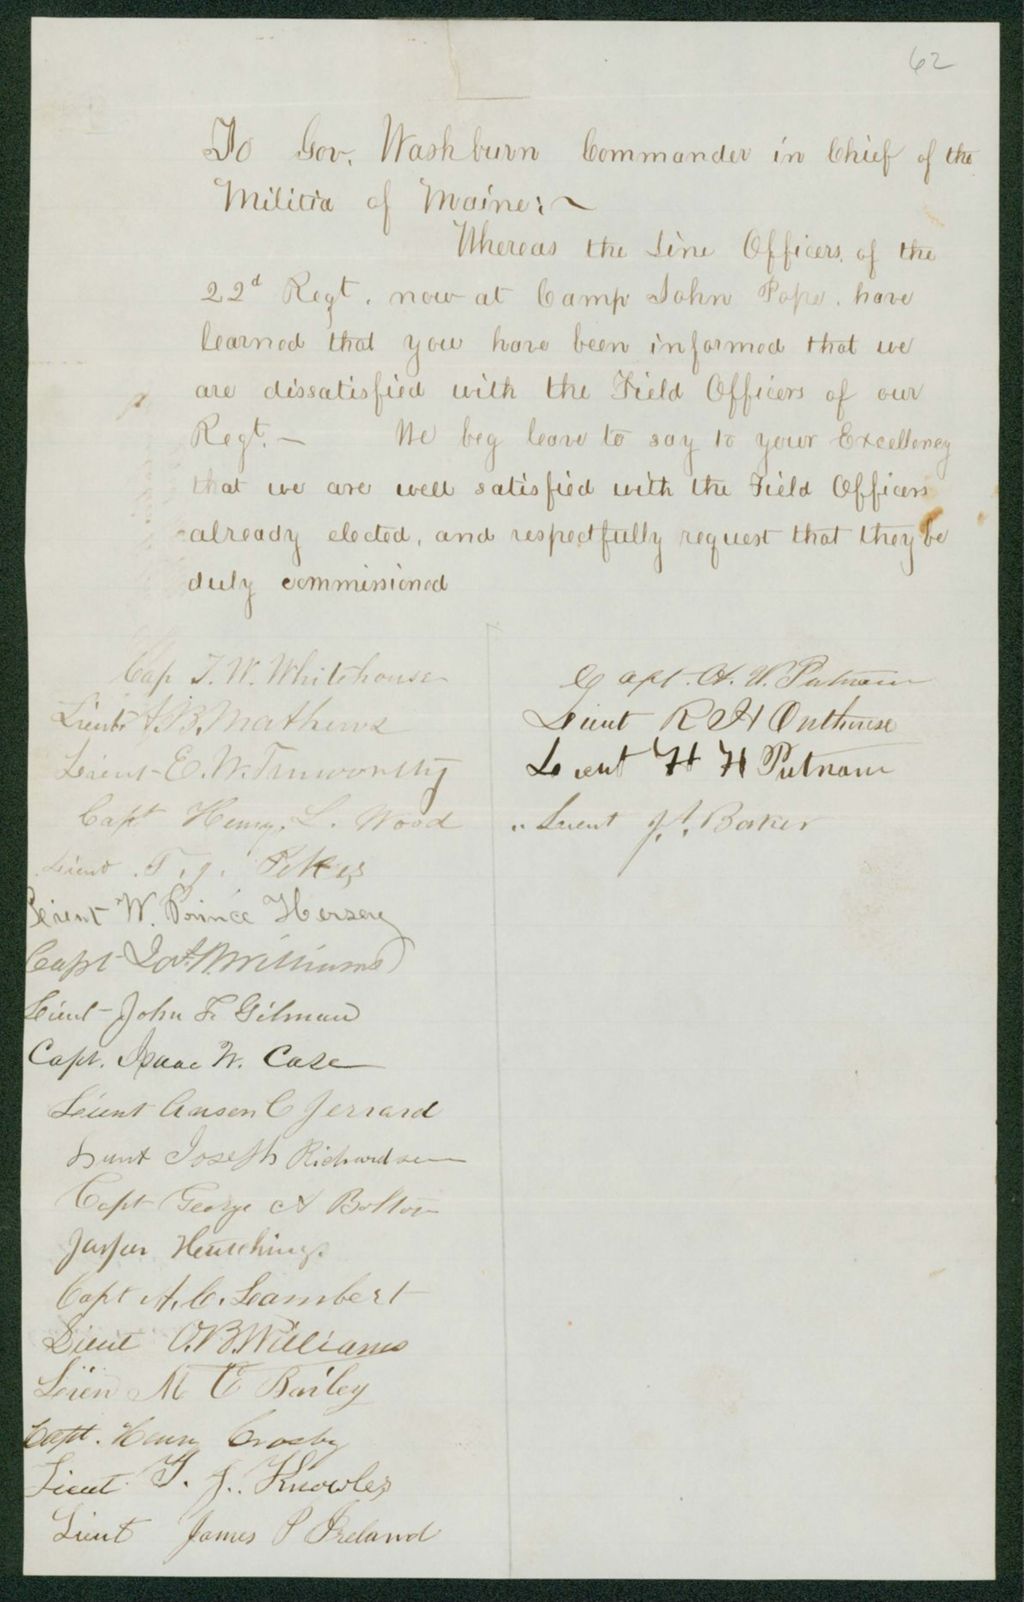 62
To Gov. Washburn Commander in Chief of the
Militia of Maine:~
Whereas the Line Officers of the
22d Regt. now at Camp John Pope. have
learned that you have been informed that we
are dissatisfied with the Field Officers of our
Regt. — We beg leave to say to your Excellency
that we are well satisfied with the Field Officers
already elected, and respectfully request that they be
duly commissioned
Cap T. W. Whitehouse
Lieut J. B. Mathews
Lieut E. W. Trueworthy
Capt Henry. L. Wood
Lieut
Lieut W. Prince Hersey
Capt Williams
Lieut John F. Gilman
Capt. Isaac W. Case
Lieut Anson C Jerrard
Lieut Joseph Richardson
Capt George A Bolton
Jasper Hutchings
Capt A. C. Lambert
Lieut O. B. Williams
Lieu M E Bailey
Capt. Henry Crosby
Lieut T. J. Knowles
Lieut James P Ireland
Capt. H. W. Putnam
Lieut R H Outhouse
Lieut H H Putnam
Lieut J. A. Baker